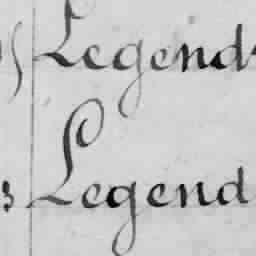 Legend
Legend